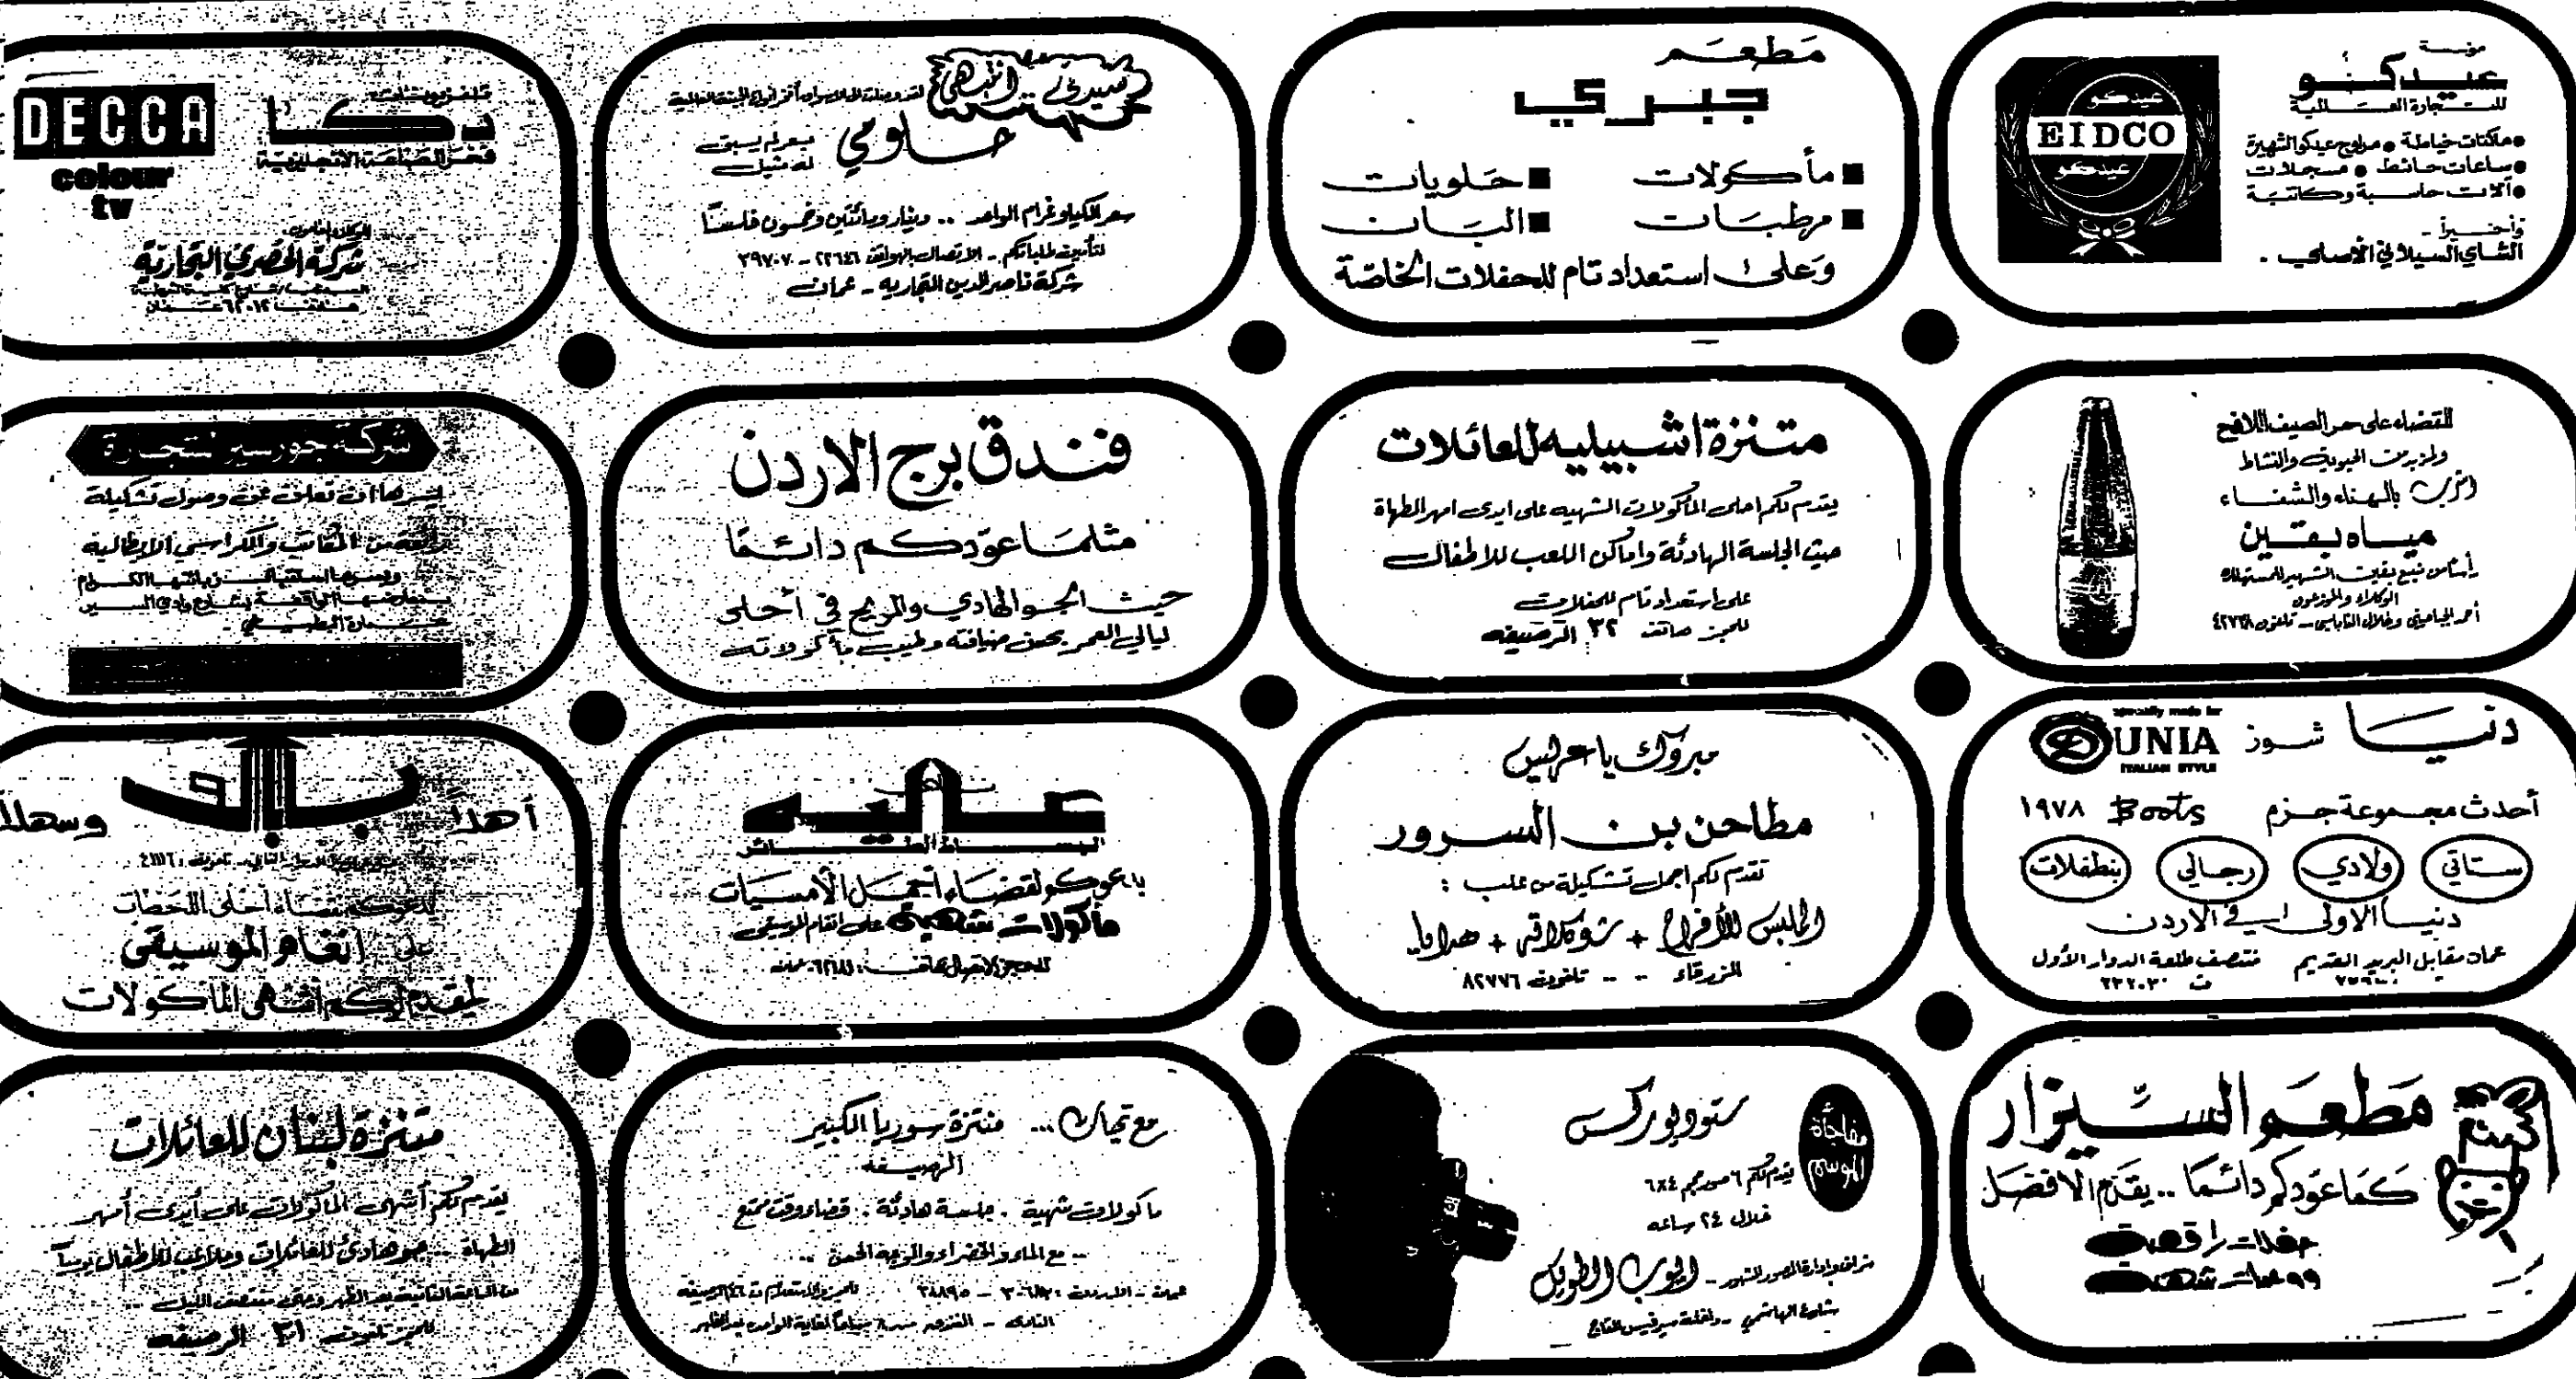 مؤسسة
عيدكو
للتجارة العالمية
عيدكو
EIDCO
عيدكو
• ماكنات خياطة • مراوح عيدكو الشهيرة
• ساعات حائط • مسجلات
• آلات حاسبة وكاتبة
وأخيراً -
الشاي السيلاني الأصلي .
مطعم
جبري
مأكولات
حلويات
مرطبات
البان
وعلى استعداد تام للحفلات الخاصة
سيدتي .. انتبهي
حلومي
بسعر لم يسبق
له مثيل
سعر الكيلو غرام الواحد .. دينار ومائتان وخمسون فلساً
لتأمين طلباتكم - الاتصال بالهواتف ٢٢٦٤٦ - ٣٩٧٠٧
شركة ناصر الدين التجارية - عمان
DECCA
colour
tv
دكا
فخر الصناعة الانجليزية
شركة الخضري التجارية
للقضاء على حر الصيف اللافح
ولمزيد من الحيوية والنشاط
اشرب بالهناء والشفاء
مياه بقين
الوكلاء والموزعون
متنزه اشبيليه للعائلات
يقدم لكم احلى المأكولات الشهيه على ايدي امهر الطهاة
حيث الجلسة الهادئة واماكن اللعب للاطفال
على استعداد تام للحفلات
للحجز هاتف ٣٢ الرصيفه
فندق برج الاردن
مثلما عودكم دائما
حيث الجو الهادي والمريح في أحلى
ليالي العمر بحسن ضيافته وطيب مأكولاته
شركة جورسير للتجارة
يسرها ان تعلن عن وصول تشكيلة
رائعة من المكاتب والكراسي الايطالية
دنيا شوز
specially made for
DUNIA
ITALIAN STYLE
أحدث مجموعة جزم Boots ١٩٧٨
ستاتي
ولادي
رجالي
بنطفلات
دنيا الاولى في الاردن
عمان مقابل البريد القديم
منتصف طلعة الدوار الأول
مبروك يا عريس
مطاحن بن السرور
تقدم لكم اجمل تشكيلة من علب :
الملبس للأفراح + شوكلاته + هدايا
الزرقاء - - تلفون ٨٢٧٧٦
عاليه
يدعوكم لقضاء أجمل الأمسيات
مأكولات شهية على انغام الموسيقى
أهلاً
وسهلاً
يدعوكم لقضاء أحلى اللحظات
على انغام الموسيقى
ليقدم لكم أشهى المأكولات
مطعم السيزار
كما عودكم دائما .. يقدم الافضل
حفلات راقصة
مفاجأة
الموسم
ستوديو ركس
يقدم لكم ٦ صور حجم ٤×٦
خلال ٢٤ ساعه
ايوب الطويل
مع تحيات ... منتزه سوريا الكبير
الرصيفه
مأكولات شهية . جلسة هادئة . قضاء وقت ممتع
.. مع الماء والخضراء والوجه الحسن ..
متنزه لبنان للعائلات
يقدم لكم أشهى المأكولات على أيدي أمهر
الطهاة .. جو هادئ للعائلات وملاعب للاطفال يومياً
من الساعة الثانية بعد الظهر وحتى منتصف الليل